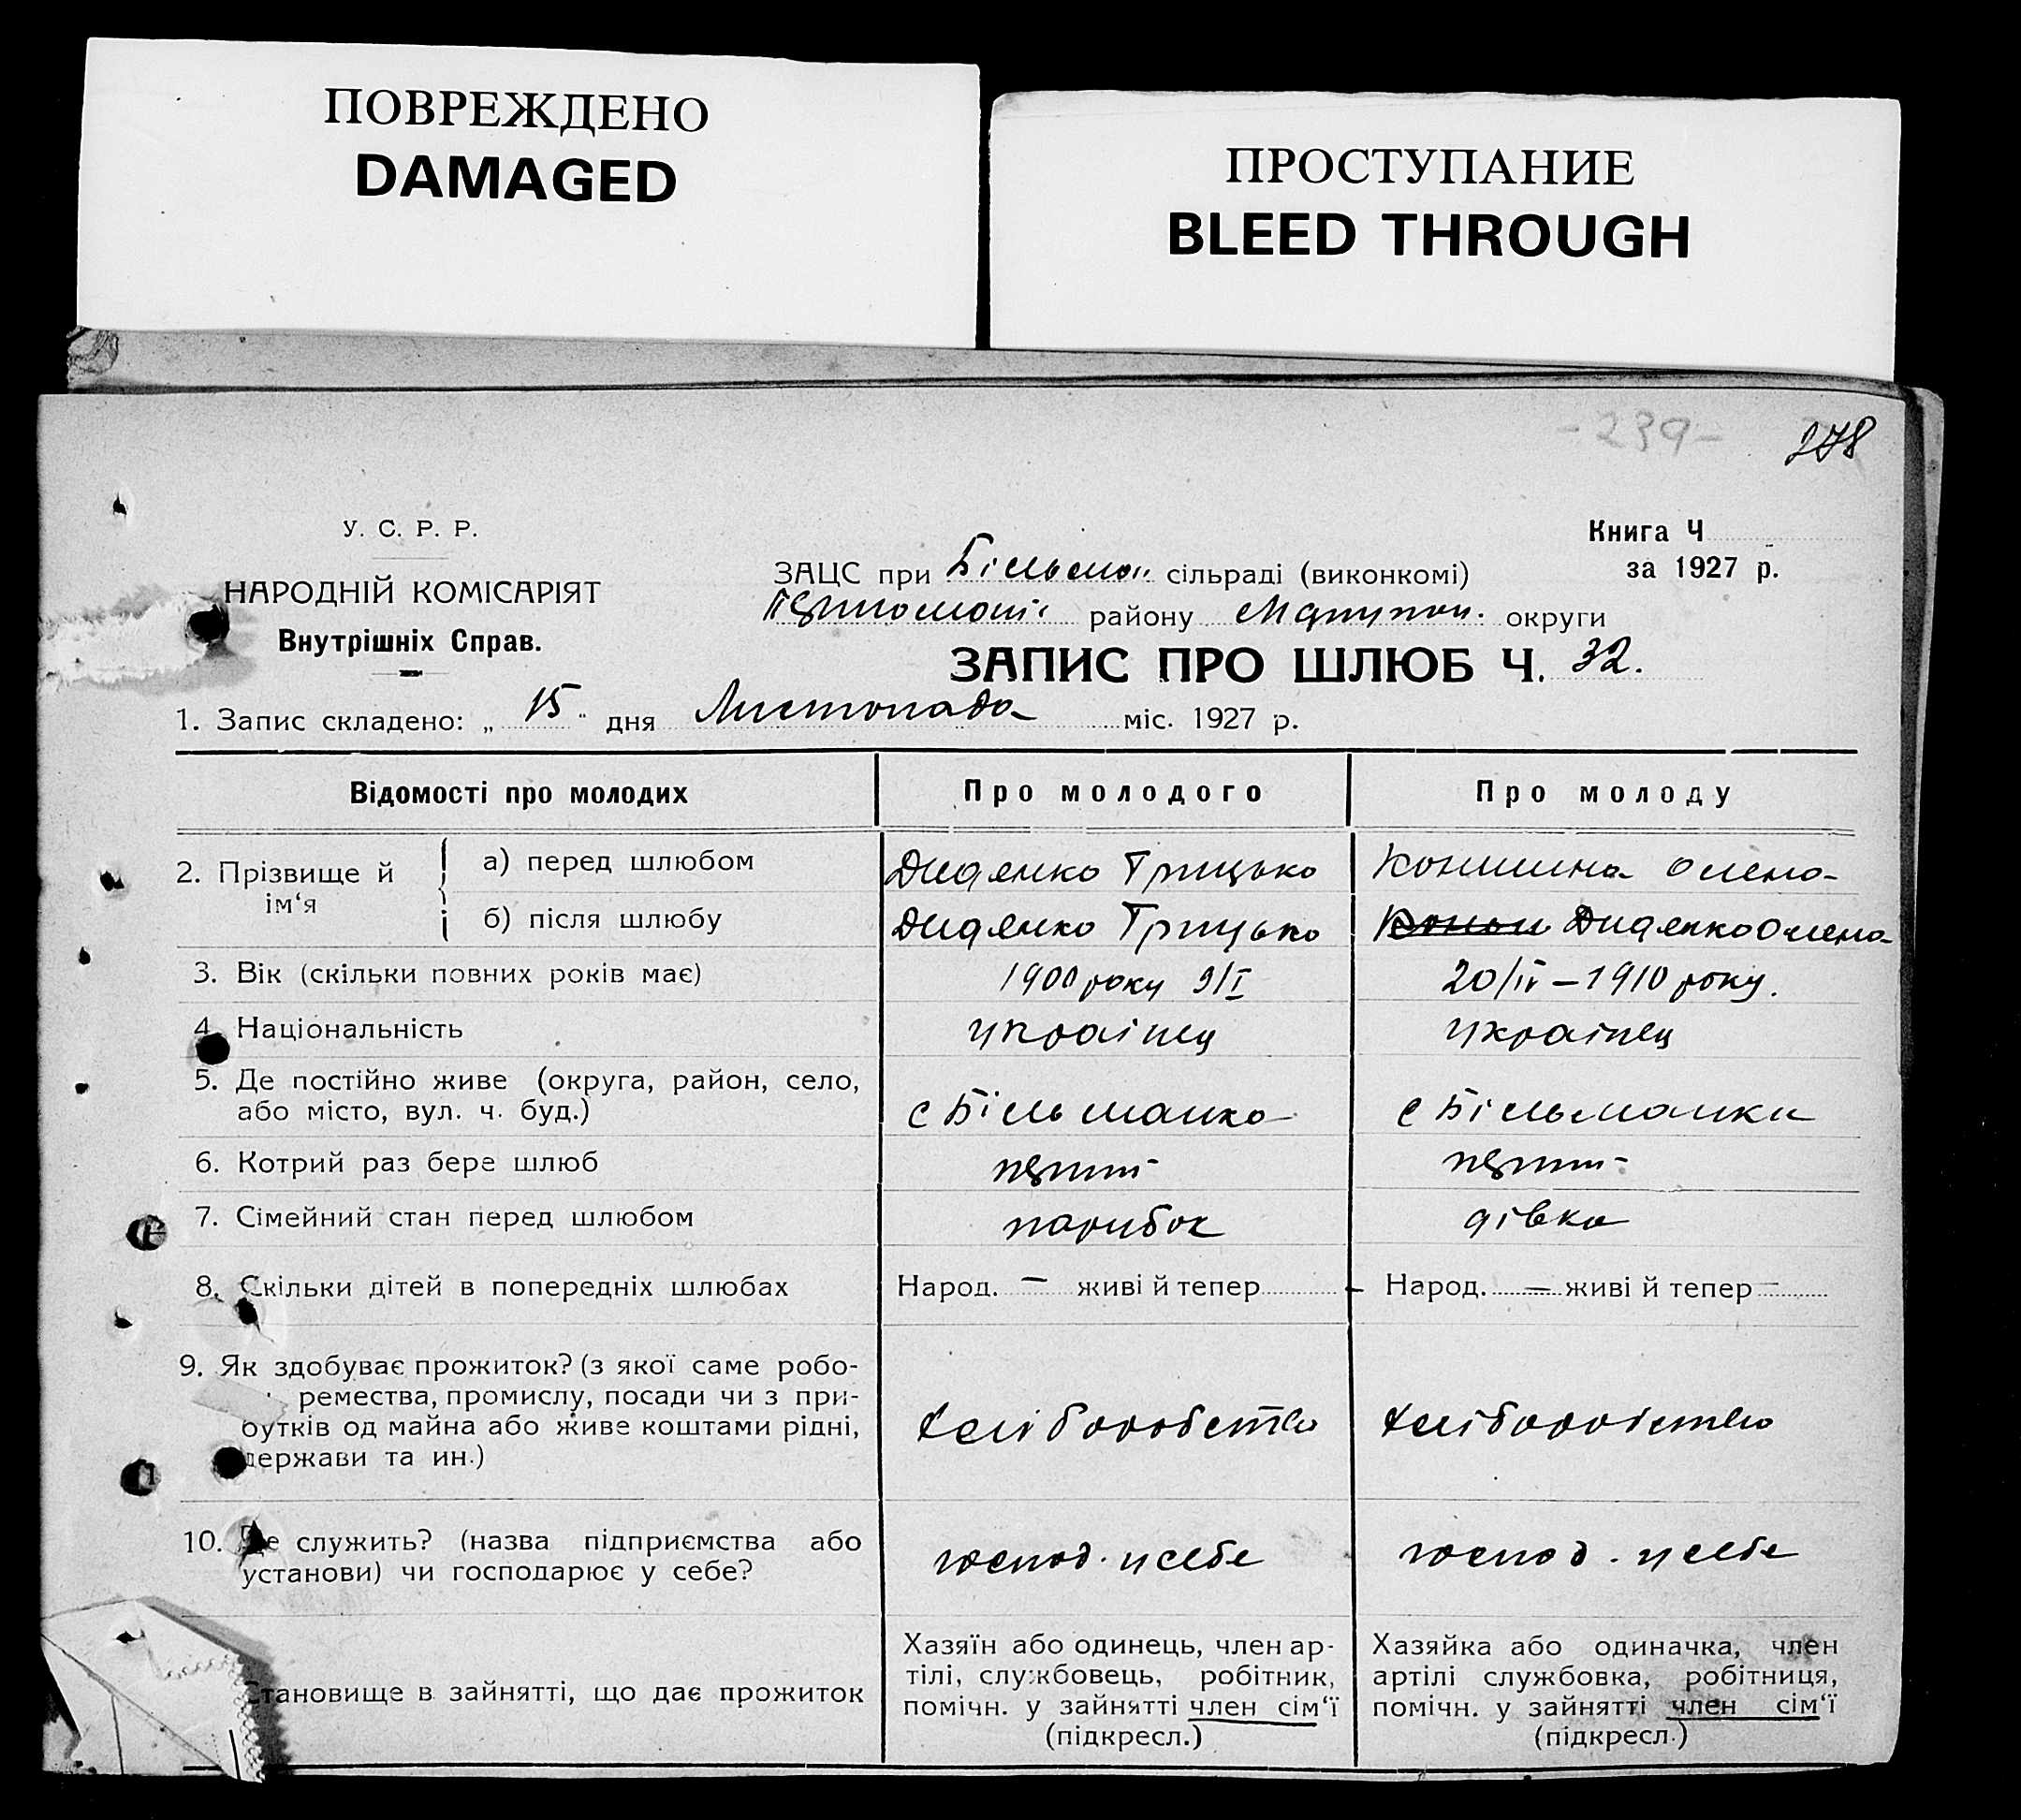 ПОВРЕЖДЕНО
DAMAGED
ПРОСТУПАНИЕ
BLEED THROUGH
- 239 - 278
У. С. Р. Р.
НАРОДНІЙ КОМІСАРІЯТ
Внутрішніх Справ.
Книга Ч
за 1927 р.
ЗАЦС при Більман. сільраді (виконкомі)
району Маріупол. округи
ЗАПИС ПРО ШЛЮБ Ч. 32.
1. Запис складено: „ 15 “ дня Листопада міс. 1927 р.
Відомості про молодих Про молодого Про молоду
2. Прізвище й ім‘я
а) перед шлюбом Диденко Грицько Коншина Олена
б) після шлюбу Диденко Грицько Диденко Олена
3. Вік (скільки повних років має) 1900 року 9/I 20/IV – 1910 року.
4. Національність українец українец
5. Де постійно живе (округа, район, село,
або місто, вул. ч. буд.) с Більманка с Більманки
6. Котрий раз бере шлюб перший перший
7. Сімейний стан перед шлюбом парубок дівка
8. Скільки дітей в попередніх шлюбах Народ. – живі й тепер – Народ. – живі й тепер –
9. Як здобуває прожиток? (з якої саме робо-
ремества, промислу, посади чи з при-
бутків од майна або живе коштами рідні,
держави та ин.) хліборобство хліборобство
10. Де служить? (назва підприємства або
установи) чи господарює у себе? господ. у себе господ. у себе
Становище в зайнятті, що дає прожиток
Хазяїн або одинець, член ар-
тілі, службовець, робітник,
помічн. у зайнятті член сім‘ї
(підкресл.)
Хазяйка або одиначка, член
артілі службовка, робітниця,
помічн. у зайнятті член сім‘ї
(підкресл.)